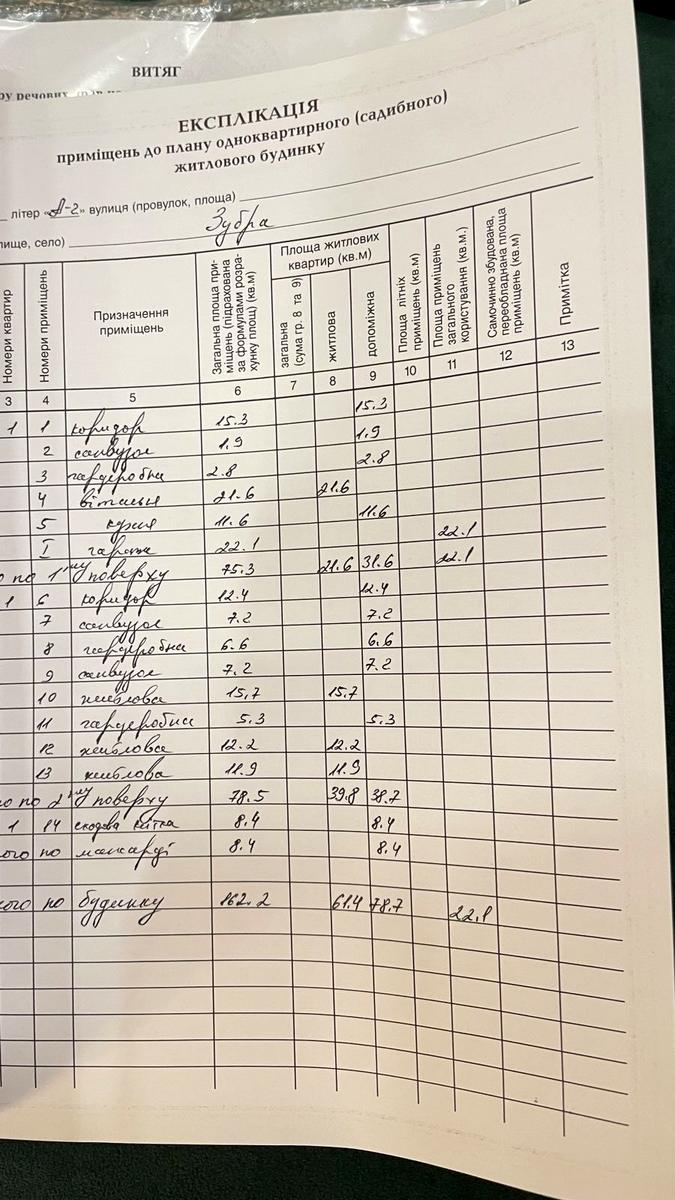 ВИТЯГ
ЕКСПЛІКАЦІЯ
приміщень до плану одноквартирного (садибного)
житлового будинку
літер «А-2» вулиця (провулок, площа)
село) Зубра
Номери квартир Номери приміщень Призначення приміщень Загальна площа приміщень (підрахована за формулами розрахунку площ) (кв.м) Площа житлових квартир (кв.м) загальна (сума гр. 8 та 9) житлова допоміжна Площа літніх приміщень (кв.м) Площа приміщень загального користування (кв.м.) Самочинно збудована, переобладнана площа приміщень (кв.м) Примітка
3 4 5 6 7 8 9 10 11 12 13
1 1 коридор 15.3 15.3
2 санвузол 1.9 1.9
3 гардеробна 2.8 2.8
4 вітальня 21.6 21.6
5 кухня 11.6 11.6
I гараж 22.1 22.1
по 1му поверху 75.3 21.6 31.6 22.1
1 6 коридор 12.4 12.4
7 санвузол 7.2 7.2
8 гардеробна 6.6 6.6
9 санвузол 7.2 7.2
10 житлова 15,7 15.7
11 гардеробна 5.3 5.3
12 житлова 12.2 12.2
13 житлова 11.9 11.9
по 2му поверху 78.5 39.8 38.7
1 14 сходова клітка 8.4 8.4
по мансарді 8.4 8.4
по будинку 162.2 61.4 78.7 22.1